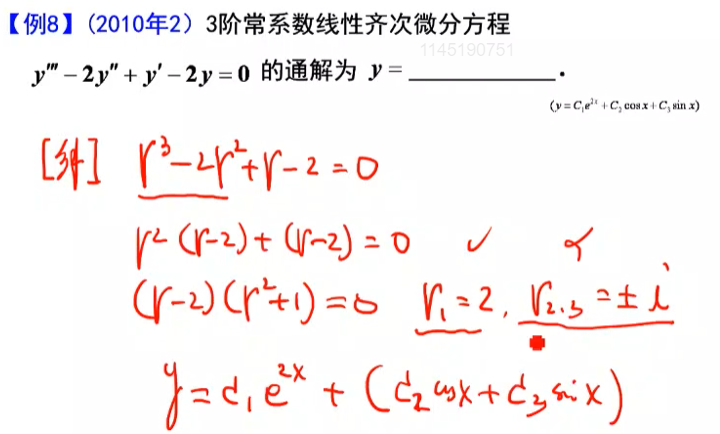 【例8】(2010年2) 3阶常系数线性齐次微分方程
1145190751
y''' − 2y'' + y' − 2y = 0 的通解为 y = ____________.
(y = C₁e²ˣ + C₂ cos x + C₃ sin x)
[解] r³ − 2r² + r − 2 = 0
r² (r−2) + (r−2) = 0 ✓
(r−2) (r²+1) = 0 r₁ = 2, r₂.₃ = ± i
y = C₁ e²ˣ + (C₂ cosx + C₃ sin x)